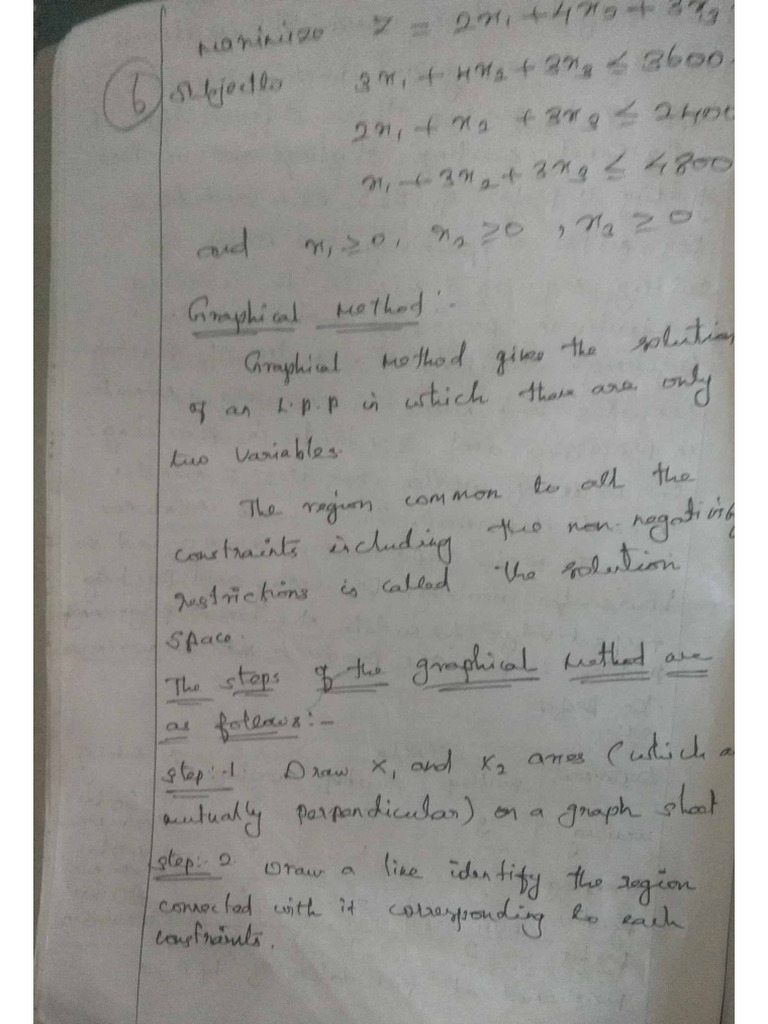 Maximize Z = 2x₁ + 4x₂ + 3x₃
6 subject to 3x₁ + 4x₂ + 3x₃ ≤ 3600
2x₁ + x₂ + 3x₃ ≤ 2400
x₁ + 3x₂ + 3x₃ ≤ 4800
and x₁ ≥ 0, x₂ ≥ 0, x₃ ≥ 0
Graphical Method:-
Graphical Method gives the solution
of an L.P.P in which there are only
two variables.
The region common to all the
constraints including the non-negativity
restrictions is called the solution
space.
The steps of the graphical Method are
as follows:-
step:-1. Draw X₁ and X₂ axes (which a
mutually perpendicular) on a graph sheet
step:-2. Draw a line identify the region
connected with it corresponding to each
constraints.